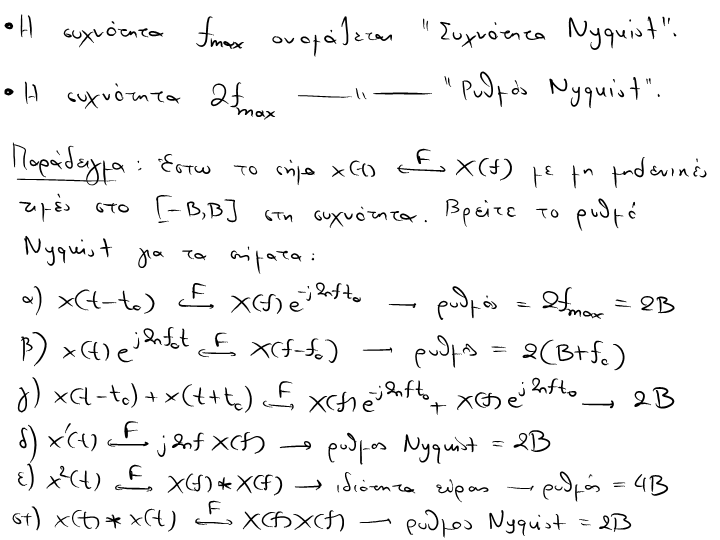 • Η συχνότητα f_max ονομάζεται "Συχνότητα Nyquist".
• Η συχνότητα 2f_max —— " —— "Ρυθμός Nyquist".
Παράδειγμα: Έστω το σήμα x(t) ⟷^F X(f) με μη μηδενικές
τιμές στο [-B,B] στη συχνότητα. Βρείτε το ρυθμό
Nyquist για τα σήματα:
α) x(t-t₀) ⟷^F X(f)e^{-j2πft₀} → ρυθμός = 2f_max = 2B
β) x(t)e^{j2πf₀t} ⟷^F X(f-f₀) → ρυθμός = 2(B+f₀)
γ) x(t-t₀)+x(t+t₀) ⟷^F X(f)e^{-j2πft₀} + X(f)e^{j2πft₀} → 2B
δ) x'(t) ⟷^F j2πf X(f) → ρυθμος Nyquist = 2B
ε) x²(t) ⟷^F X(f)*X(f) → ιδιότητα εύρους → ρυθμός = 4B
στ) x(t)*x(t) ⟷^F X(f)X(f) → ρυθμος Nyquist = 2B